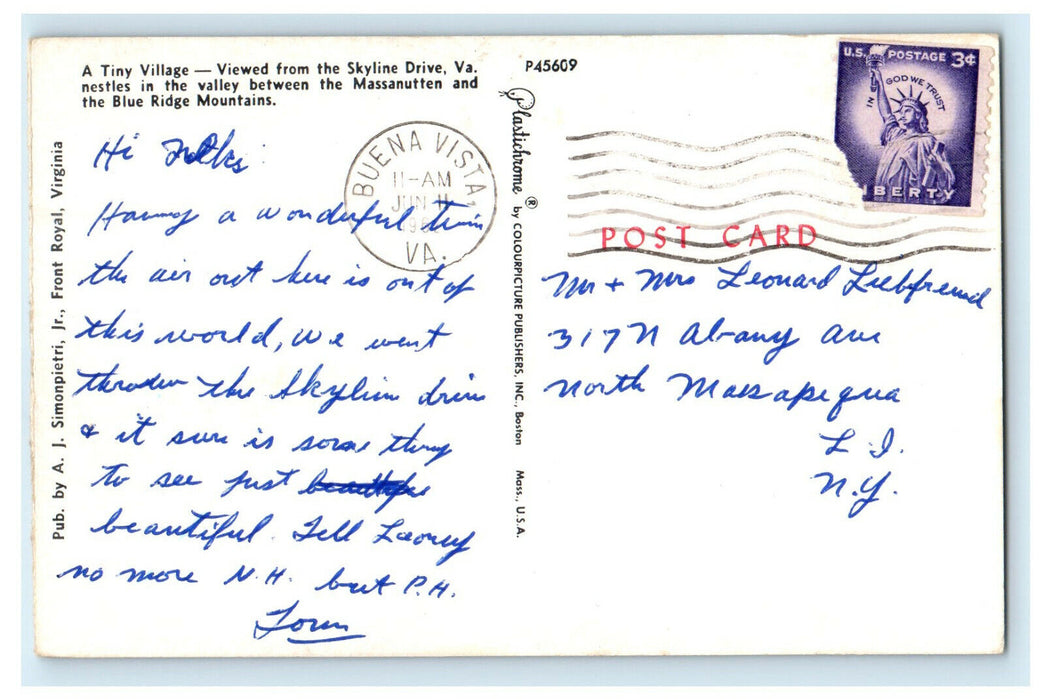 A Tiny Village — Viewed from the Skyline Drive, Va.
nestles in the valley between the Massanutten and
the Blue Ridge Mountains.
P45609
Pub. by A. J. Simonpietri, Jr., Front Royal, Virginia
Plastichrome ® by COLOURPICTURE PUBLISHERS, INC., Boston Mass., U.S.A.
BUENA VISTA,
11-AM
JUN 11
VA.
U.S. POSTAGE 3¢
IN GOD WE TRUST
IBERTY
POST CARD
Hi Folks
Having a wonderful time
the air out here is out of
this world, we went
the Skyline drive
& it sure is some thing
to see just
beautiful. Tell
no more N.H. but P.H.
Mr + Mrs Leonard
317 N Albany Ave
North Massapequa
L I.
N.Y.